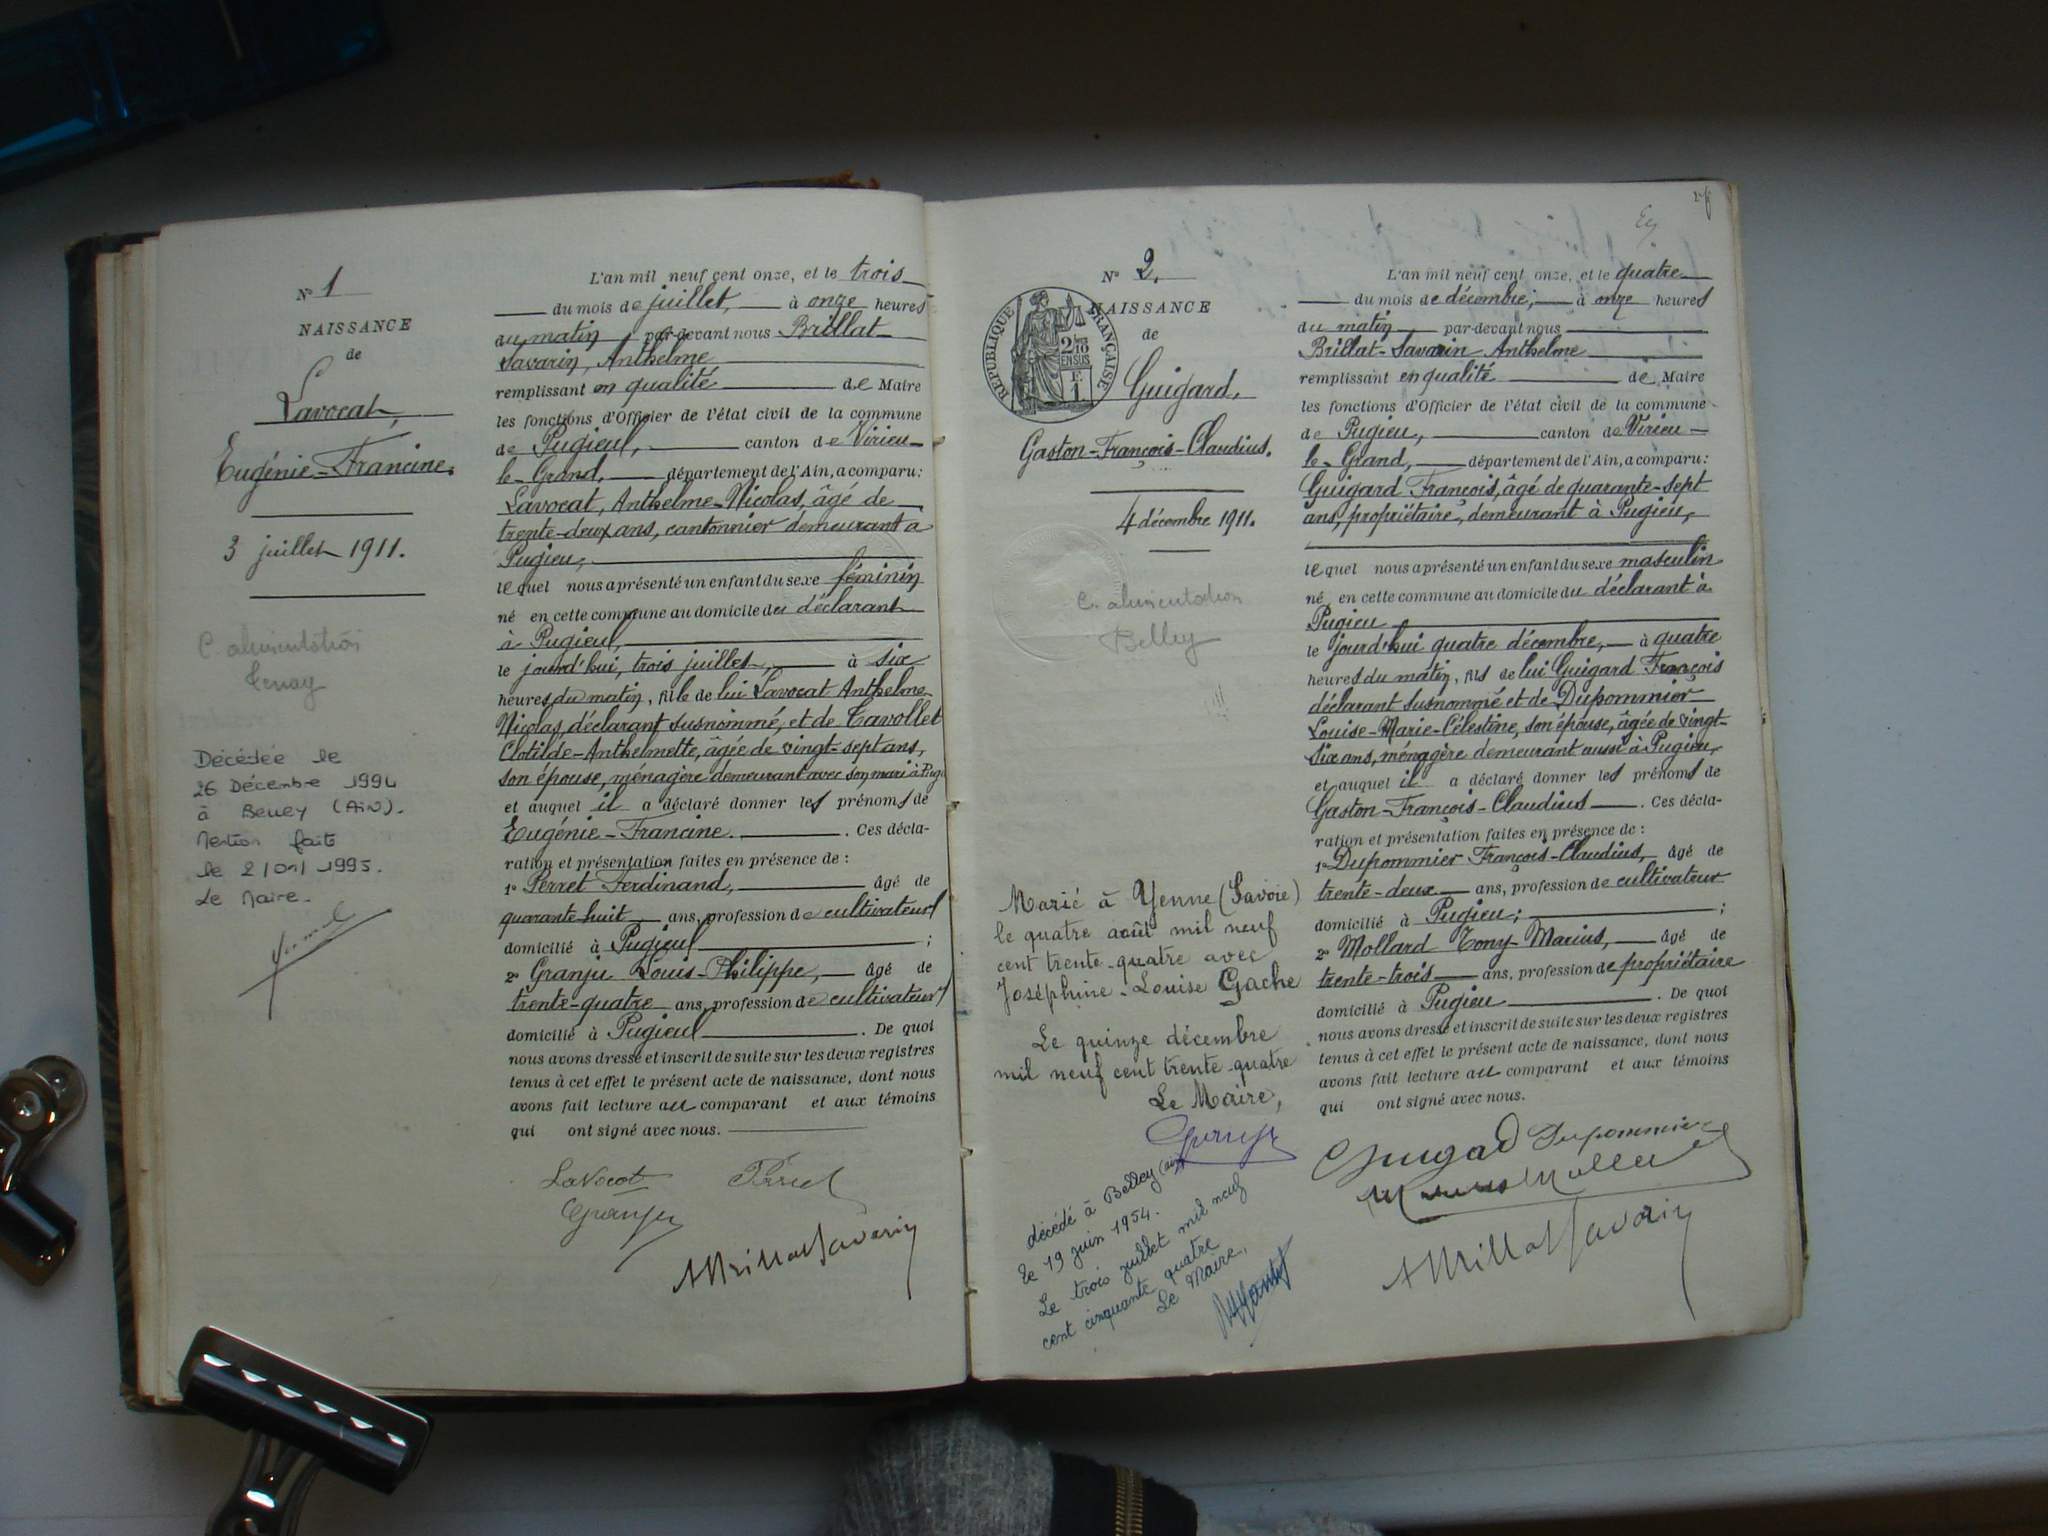 N° 1
NAISSANCE
de
Lavocat,
Eugénie-Francine.
3 juillet 1911.
C. alimentation
Tenay
Décédée le
26 Décembre 1994
à Belley (Ain).
Mention faite
le 2/01/1995.
Le Maire.
L'an mil neuf cent onze, et le trois
du mois de juillet, à onze heures
du matin par-devant nous Brillat-
Savarin, Anthelme
remplissant en qualité de Maire
les fonctions d'Officier de l'état civil de la commune
de Pugieu, canton de Virieu-
le-Grand, département de l'Ain, a comparu:
Lavocat, Anthelme-Nicolas, âgé de
trente-deux ans, cantonnier demeurant à
Pugieu,
lequel nous a présenté un enfant du sexe féminin
né en cette commune au domicile du déclarant
à Pugieu,
le jourd'hui, trois juillet, à six
heures du matin, fille de lui Lavocat Anthelme
Nicolas, déclarant susnommé, et de Cavollet
Clotilde-Anthelmette, âgée de vingt-sept ans,
son épouse, ménagère demeurant avec son mari à Pugi
et auquel il a déclaré donner les prénoms de
Eugénie-Francine. Ces décla-
ration et présentation faites en présence de :
1° Perret Ferdinand, âgé de
quarante huit ans, profession de cultivateur
domicilié à Pugieu ;
2° Granju Louis-Philippe, âgé de
trente-quatre ans, profession de cultivateur
domicilié à Pugieu. De quoi
nous avons dressé et inscrit de suite sur les deux registres
tenus à cet effet le présent acte de naissance, dont nous
avons fait lecture au comparant et aux témoins
qui ont signé avec nous.
Lavocat Perret
Granju
A Brillat Savarin
N° 2.
NAISSANCE
de
RÉPUBLIQUE FRANÇAISE
2/10
EN SUS
F.
1
Guigard,
Gaston-François-Claudius.
4 décembre 1911.
C. alimentation
Belley
Marié à Yenne (Savoie)
le quatre août mil neuf
cent trente-quatre avec
Joséphine-Louise Gache
Le quinze décembre
mil neuf cent trente-quatre
Le Maire,
Granju
décédé à Belley (ain)
le 19 juin 1954.
Le trois juillet mil neuf
cent cinquante quatre
Le Maire,
L'an mil neuf cent onze, et le quatre
du mois de décembre, à onze heures
du matin par-devant nous
Brillat-Savarin Anthelme
remplissant en qualité de Maire
les fonctions d'Officier de l'état civil de la commune
de Pugieu, canton de Virieu-
le-Grand, département de l'Ain, a comparu:
Guigard François, âgé de quarante-sept
ans, propriétaire, demeurant à Pugieu,
lequel nous a présenté un enfant du sexe masculin
né en cette commune au domicile du déclarant à
Pugieu
le jourd'hui quatre décembre, à quatre
heures du matin, fils de lui Guigard François
déclarant susnommé et de Dupommier
Louise-Marie-Célestine, son épouse, âgée de vingt-
six ans, ménagère demeurant aussi à Pugieu,
et auquel il a déclaré donner les prénoms de
Gaston-François-Claudius. Ces décla-
ration et présentation faites en présence de :
1° Dupommier François-Claudius, âgé de
trente-deux ans, profession de cultivateur
domicilié à Pugieu; ;
2° Mollard Tony-Marius, âgé de
trente-trois ans, profession de propriétaire
domicilié à Pugieu. De quoi
nous avons dressé et inscrit de suite sur les deux registres
tenus à cet effet le présent acte de naissance, dont nous
avons fait lecture au comparant et aux témoins
qui ont signé avec nous.
Guigard Dupommier
Marius Mollard
A Brillat Savarin